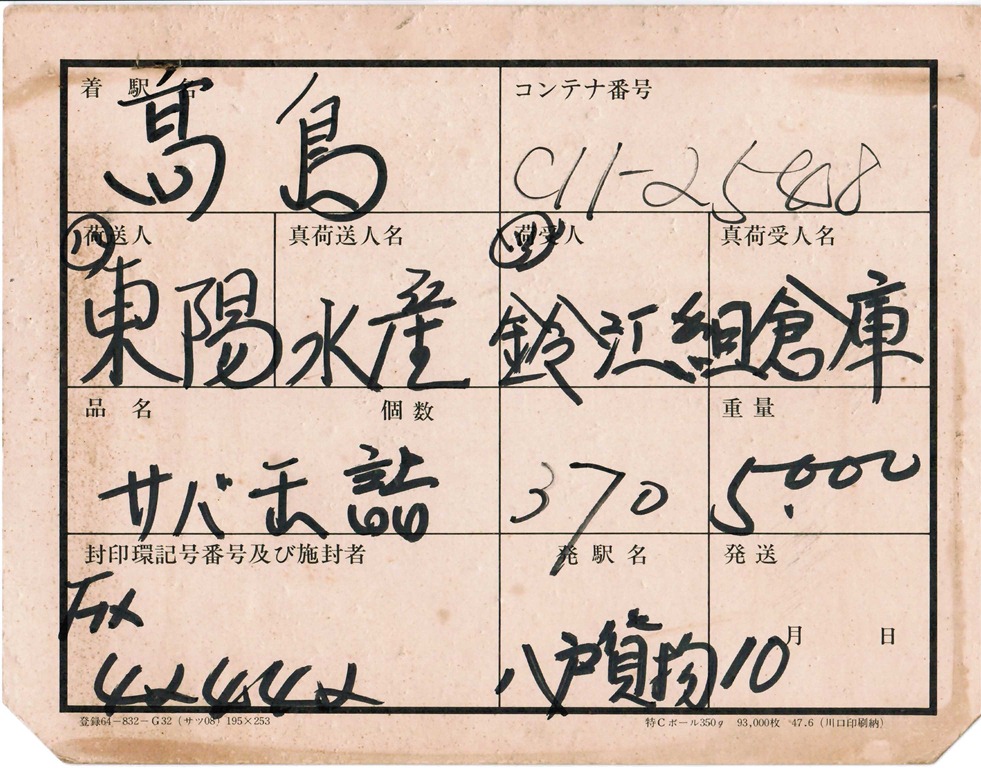 着駅名 コンテナ番号
高島 C11-25408
荷送人 真荷送人名 荷受人 真荷受人名
東陽水産 鈴江組倉庫
品名 個数 重量
サバ缶詰 370 5.000
封印環記号番号及び施封者 発駅名 発送
八戸貨物 10月 日
登録64-832-G32(サツ08)195×253 特Cボール350g 93,000枚 47.6(川口印刷納)